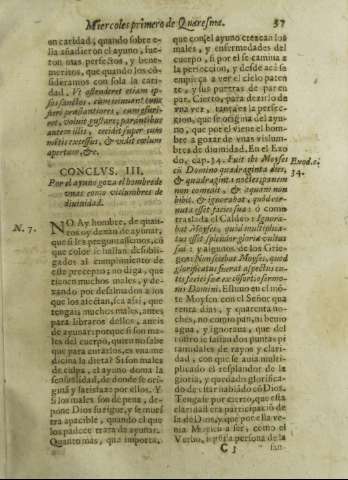 Miercoles primero de Quaresma. 57
en caridad; quando sobre e-
lla añadieron el ayuno, fue-
ron mas perfectos, y bene-
meritos, que quando los cõ-
sideramos con sola la cari-
dad. Vt ostenderet etiam ip-
sos sanctos, cum
voluit gustare,
autem illis, cecidit super eum
mentis excessus, & vidit cœlum
apertum, &c.
CONCLVS. III.
Por el ayuno goza el hombre de
vnas como vislumbres de
diuinidad.
N. 7.
NO Ay hombre, de quan-
tos oy dexan de ayunar,
que si les preguntassemos, cò
que color se hallan desobli-
gados al cumplimiento de
este precepto; no diga, que
tienen muchos males, y de-
xando por desalmados a los
que los afectan, sea assi, que
tengais muchos males, antes
para libraros dellos, aueis
de ayunar: porque si son ma-
les del cuerpo, quien no sabe
que para curarlos, es vna me
dicina la dieta? Si son males
de culpa, el ayuno doma la
sensualidad, de donde se ori-
gina, y satisfaze por ellos. Y
si los males son de pena, de-
pone Dios su rigor, y se mues
tra apacible, quando el que
los padece trata de ayunar.
Quanto mas, que importa,
que con el ayuno crezcan los
males, y enfermedades del
cuerpo, si por el se camina a
la perfeccion, y desde acà se
empieça a ver el cielo paten
te, y sus puertas de par en
par. Cierto, para dezirlo de
vna vez, tanta es la perfec-
cion, que se origina del ayu-
no, que por el viene el hom-
bre a gozar de vnas vislum-
bres de diuinidad. En el Exo
do, cap. 34. Fuit ibi Moyses
cũ Domino quadraginta dies,
& quadraginta noctes, panem
non comedit, & aquam non
bibit, & ignorabat, quòd cor-
nuta esset facies sua: ò como
traslada el Caldeo: Ignora-
bat Moyses, quia multiplica-
tus esset splendor gloriæ vultus
sui: y algunos de los Grie-
gos: Nonsciebat Moyses, quod
glorificatus fuerat aspectus cu-
tis faciei suæ ex consortio sermo-
nis Domini. Estuuo en el mõ-
te Moysen con el Señor qua
renta dias, y quarenta no-
ches, no comio pan, ni beuio
agua, y ignoraua, que del
rostro le salian dos puntas pi
ramidales de rayos y clari-
dad, con que se auia multi-
plicado el resplandor de la
gloria, y quedado glorifica-
do de estar hablãdo cõ Dios.
Tengase por cierto, que esta
claridad era participaciõ de
la de Dios, y que por ella ve-
nia Moysen a ser, como el
Verbo,
Exod. c.
34.
C 3